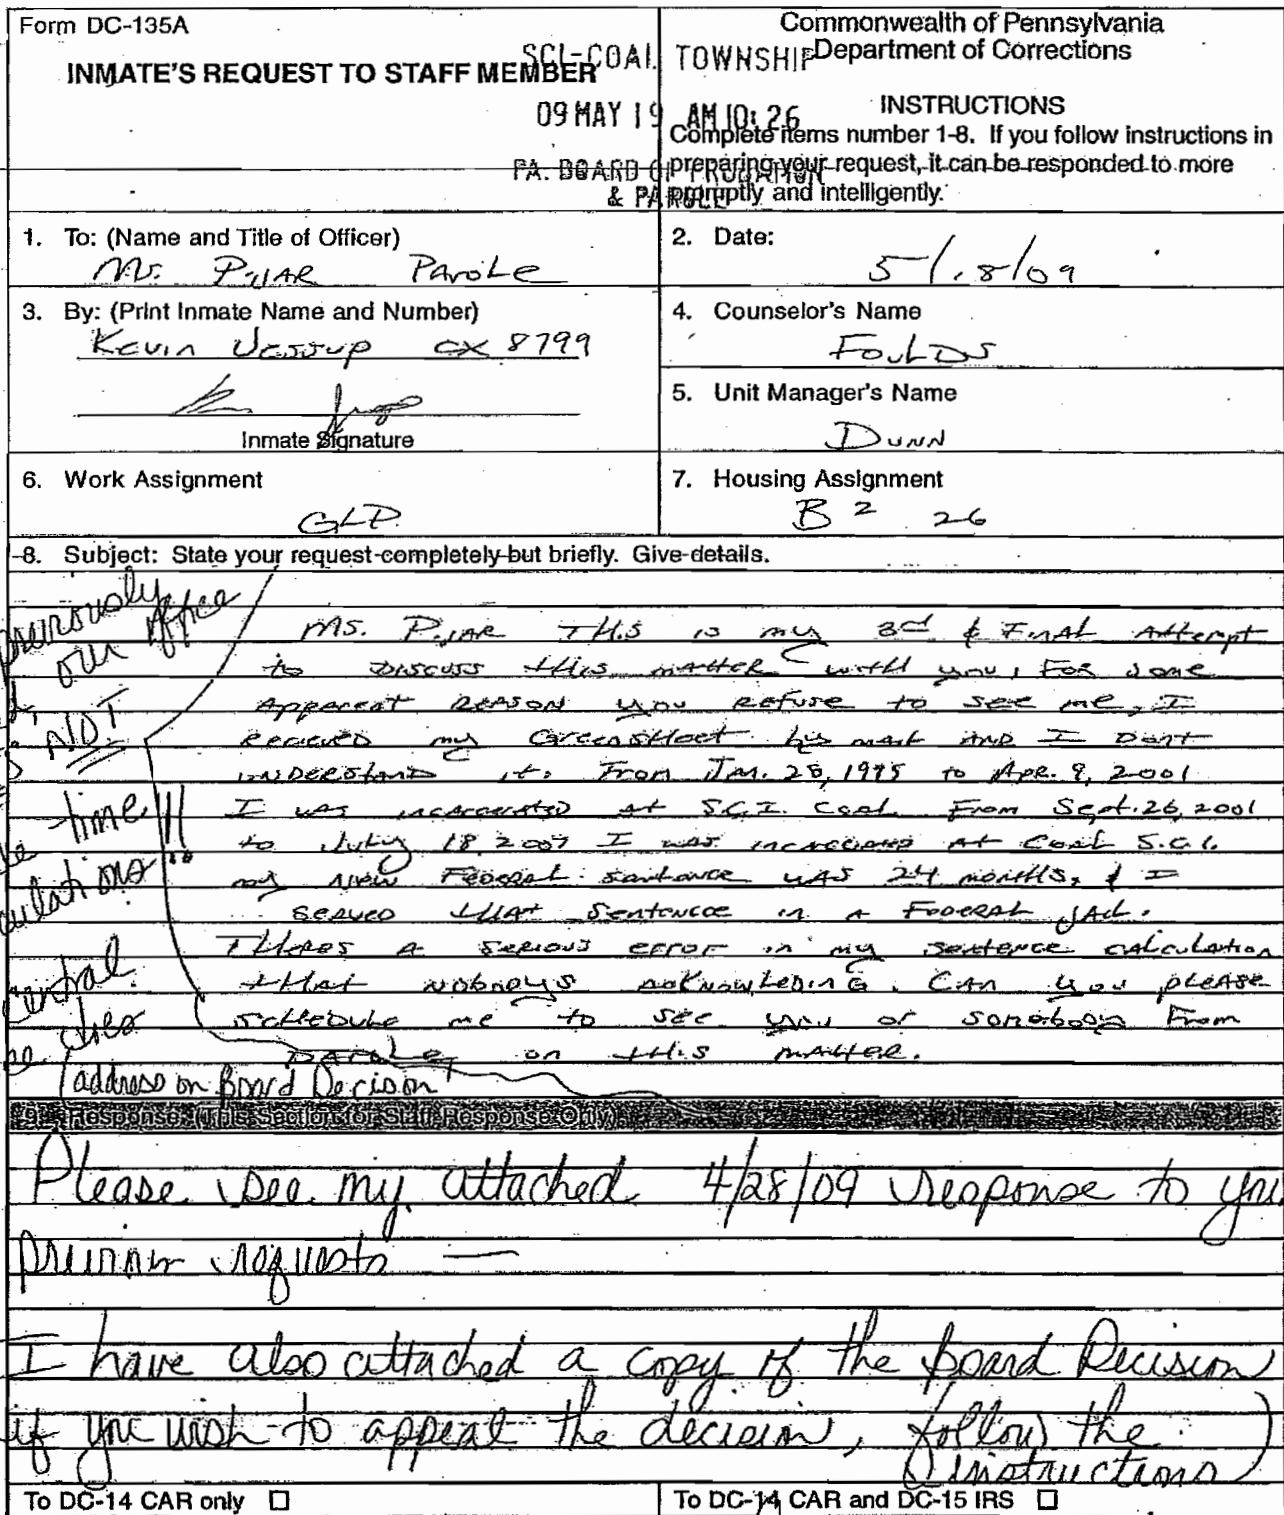 Form DC-135A
INMATE'S REQUEST TO STAFF MEMBER
Commonwealth of Pennsylvania
Department of Corrections
SCI-COAL TOWNSHIP
09 MAY 19 AM 10:26
PA. BOARD OF PROBATION
& PAROLE
INSTRUCTIONS
Complete items number 1-8. If you follow instructions in
preparing your request, it can be responded to more
promptly and intelligently.
1. To: (Name and Title of Officer)
Ms. PIJAR PAROLE
2. Date:
5/18/09
3. By: (Print Inmate Name and Number)
Kevin Jessup CX 8799
Inmate Signature
4. Counselor's Name
FOULDS
5. Unit Manager's Name
DUNN
6. Work Assignment
GLP
7. Housing Assignment
B 2 26
8. Subject: State your request completely but briefly. Give details.
previously
our office
NOT
time
!!!
culations
central
address on Board Decision
Ms. PIJAR THIS is my 3rd & FINAL Attempt
to DISCUSS this matter with you, FOR some
Apparent REASON you REFUSE to see me, I
RECIEVED my Greensheet by mail AND I Don't
UNDERSTAND it. From Jan. 28, 1995 to Apr. 9, 2001
I was incarcerated at S.C.I. Coal. From Sept. 26, 2001
to July 18 2007 I was at Coal S.C.I.
my New Federal sentance was 24 months, & I
served that sentence in a Federal Jail.
THERES A serious error in my sentence calculation
that nobodys acknowledinG. Can you please
SCHEDULE me to SEE you or somebody From
PAROLE on this matter.
9. Response: (This Section for Staff Response Only)
Please see my attached 4/28/09 response to you
previous requests —
I have also attached a copy of the Board Decision
if you wish to appeal the decision, follow the
instructions)
To DC-14 CAR only ☐
To DC-14 CAR and DC-15 IRS ☐